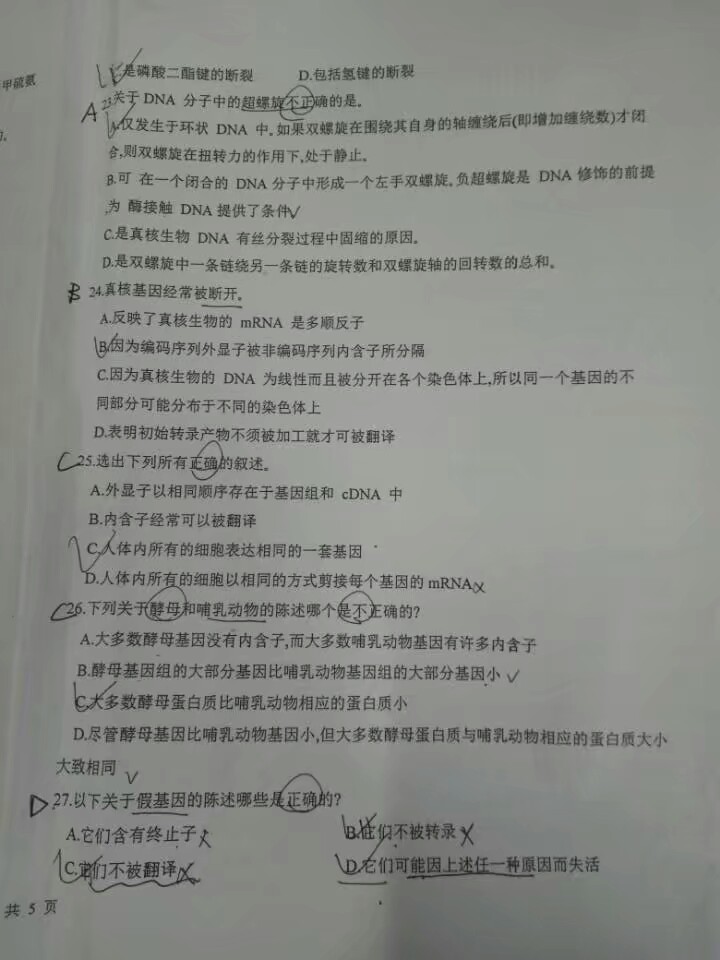 甲硫氨
C.是磷酸二酯键的断裂 D.包括氢键的断裂
A 23.关于 DNA 分子中的超螺旋不正确的是。
A.仅发生于环状 DNA 中。如果双螺旋在围绕其自身的轴缠绕后(即增加缠绕数)才闭
合,则双螺旋在扭转力的作用下,处于静止。
B.可 在一个闭合的 DNA 分子中形成一个左手双螺旋。负超螺旋是 DNA 修饰的前提
,为 酶接触 DNA 提供了条件√
C.是真核生物 DNA 有丝分裂过程中固缩的原因。
D.是双螺旋中一条链绕另一条链的旋转数和双螺旋轴的回转数的总和。
B 24.真核基因经常被断开。
A.反映了真核生物的 mRNA 是多顺反子
B.因为编码序列外显子被非编码序列内含子所分隔
C.因为真核生物的 DNA 为线性而且被分开在各个染色体上,所以同一个基因的不
同部分可能分布于不同的染色体上
D.表明初始转录产物不须被加工就才可被翻译
C 25.选出下列所有正确的叙述。
A.外显子以相同顺序存在于基因组和 cDNA 中
B.内含子经常可以被翻译
C.人体内所有的细胞表达相同的一套基因
D.人体内所有的细胞以相同的方式剪接每个基因的 mRNA x
C 26.下列关于酵母和哺乳动物的陈述哪个是不正确的?
A.大多数酵母基因没有内含子,而大多数哺乳动物基因有许多内含子
B.酵母基因组的大部分基因比哺乳动物基因组的大部分基因小 √
C.大多数酵母蛋白质比哺乳动物相应的蛋白质小
D.尽管酵母基因比哺乳动物基因小,但大多数酵母蛋白质与哺乳动物相应的蛋白质大小
大致相同 √
D 27.以下关于假基因的陈述哪些是正确的?
A.它们含有终止子 x B.它们不被转录 x
C.它们不被翻译 x D.它们可能因上述任一种原因而失活
共 5 页